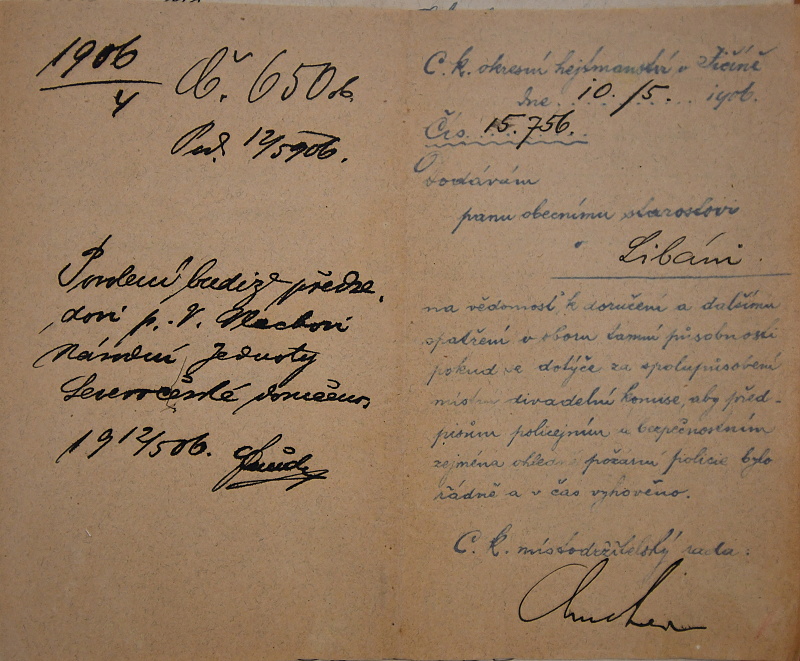 1906
4
Č. 650
12/5 906.
Povolení budiž předse,
dovi p. V. Machovi
Národní Jednoty
Severočeské doručeno
19 12/5 06.
C. k. okresní hejtmanství v Jičíně
dne 10./5. 1906.
Čís. 15.756.
Dodávám
panu obecnímu starostovi
v
Libáni.
na vědomost k doručení a dalšímu
opatření v oboru tamní působnosti
pokud se dotýče za spolupůsobení
místní divadelní komise, aby před-
pisům policejním a bezpečnostním
zejména ohledně požární policie bylo
řádně a v čas vyhověno.
C. k. místodržitelský rada: